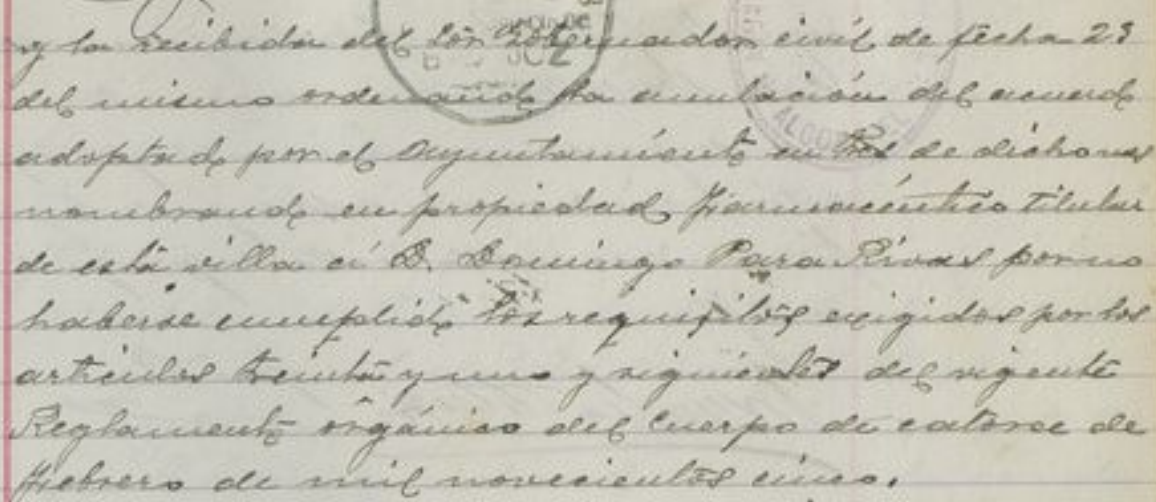 y la recibida del Sor Gobernador civil de fecha 23
del mismo ordenando la anulación del acuerdo
adoptado por el Ayuntamiento en tres de dicho mes
nombrando en propiedad Farmacéutico titular
de esta villa á D. Domingo Para Rivas por no
haberse cumplido los requisitos exigidos por los
articulos treinta y uno y siguientes del vigente
Reglamento orgánico del Cuerpo de catorce de
Febrero de mil novecientos cinco.